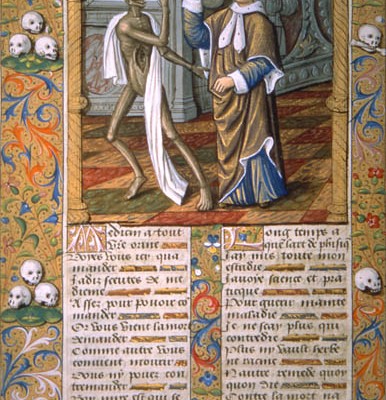 Medecin a tout
Vre orine
Voyes vous icy qua
mander
Jadis sceutes de me
decine
Assez pour pouoir co
mander
Or vous vient la mort
demander
Comme autre vous
conuient mourir
Vous ny pouez con
tremander
Bon mire est qui se
Long temps a
que lart de phisiq
Jay mis toute mon
estudie
Jauoye science et pra
tique
Pour guerir mainte
maladie
Je ne scay plus qui
contredie
Plus ny vault herbe
ne racine
Nautre remede quoy
quon die
Contre la mort na